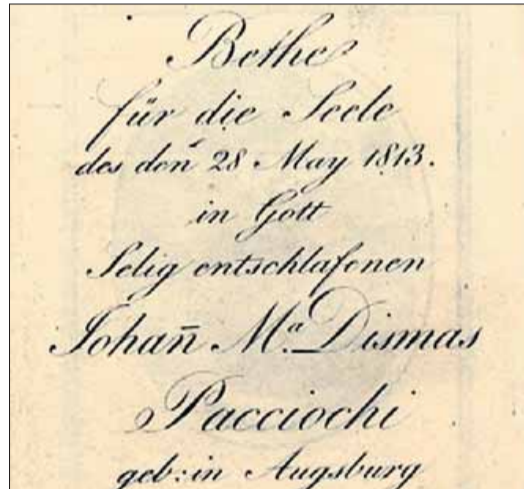 Bethe
für die Seele
des den̄ 28 May 1813.
in Gott
Selig entschlafenen
Johan̄ Mª. Dismas
Pacciochi
geb: in Augsburg